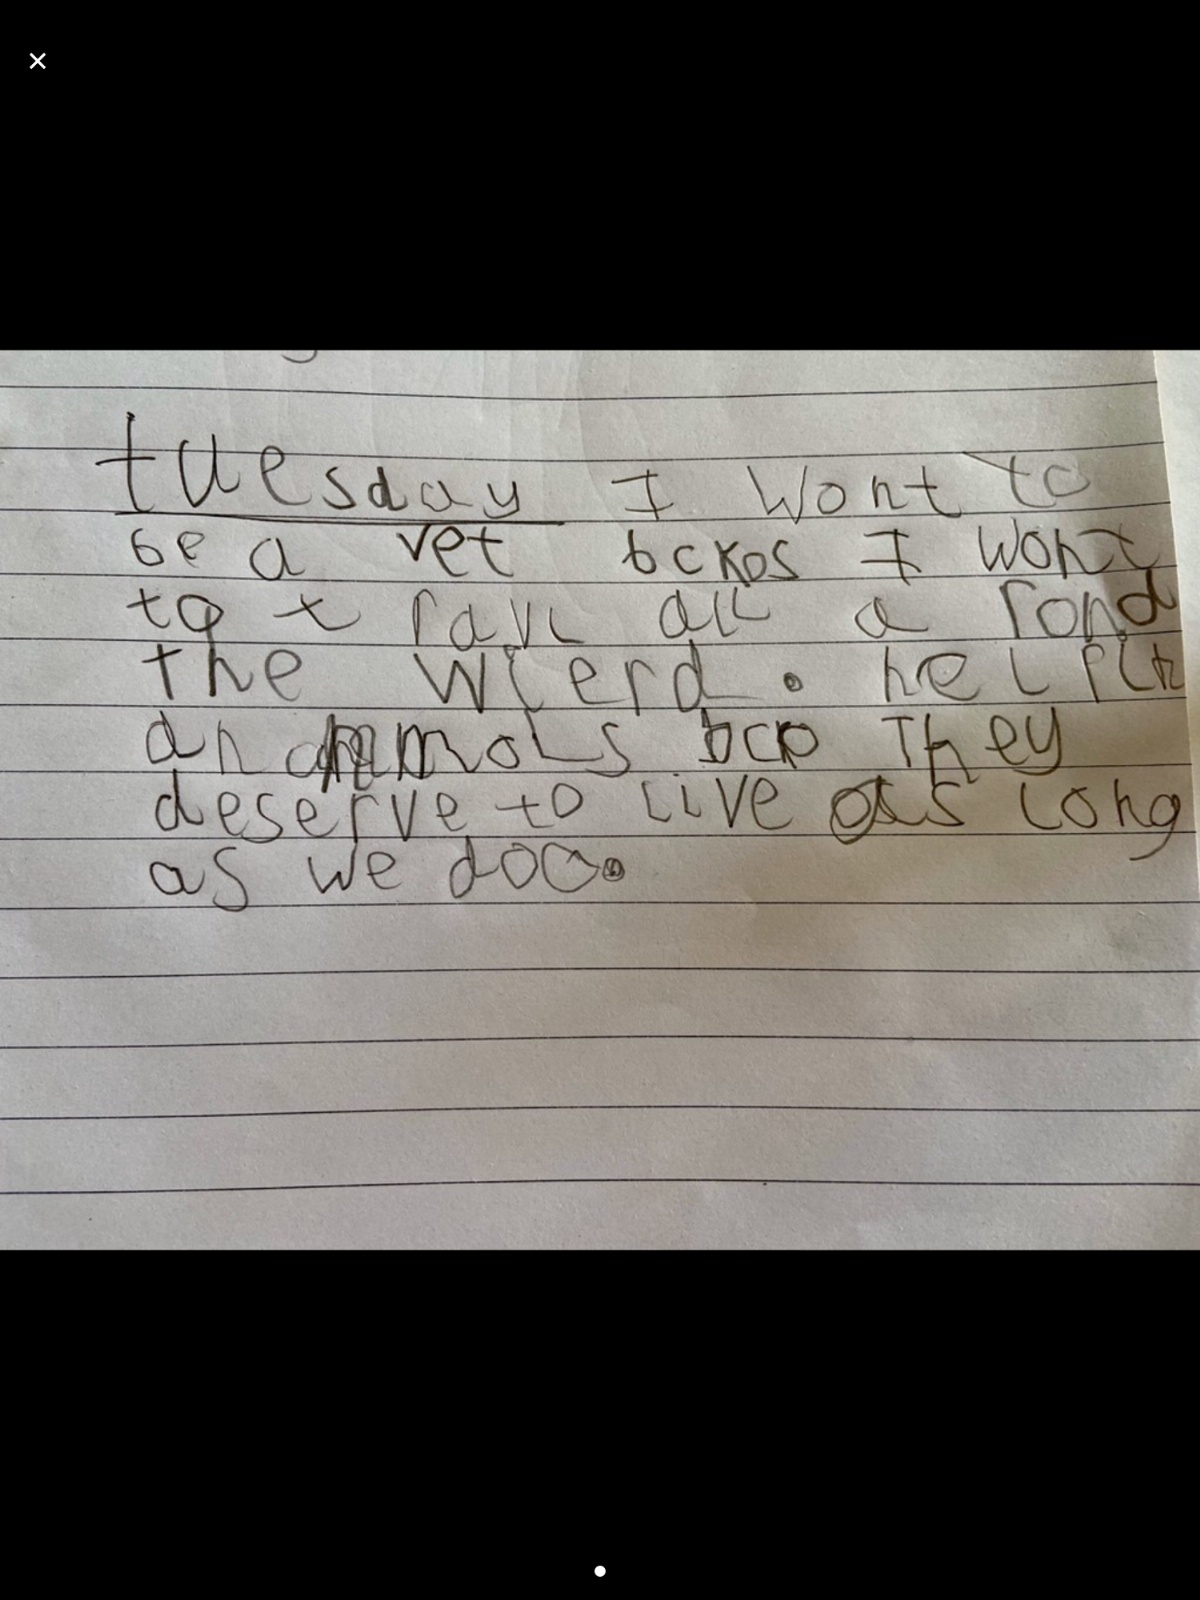 tuesday I Wont to
be a vet bckos I wont
to t ravl all a rond
the wierd. helpin
deserve to live as long
as we doo.